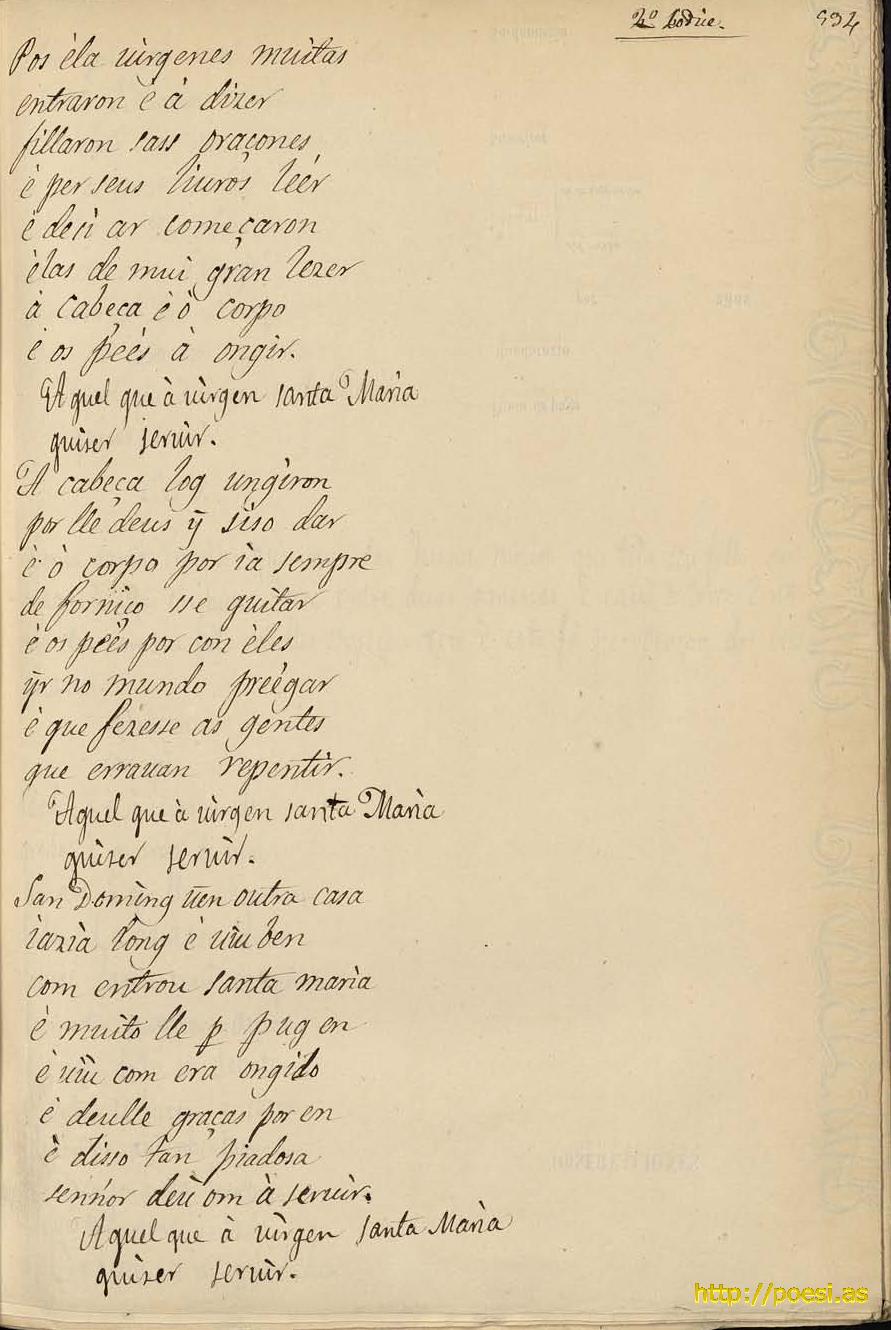 2º Codice.
534
Pos ela uirgenes muitas
entraron è à dizer
fillaron sass oraçones
è per seus liuros léér
è desi ar começaron
èlas de mui gran lezer
à cabeça è ò corpo
è os péés à ongir.
Aquel que à uirgen santa Maria
quiser seruir.
A cabeça log ungiron
por lle deus ÿ siso dar
è ò corpo por ia sempre
de forniço sse quitar
è os péés por con èles
ÿr no mundo preègar
è que fezesse as gentes
que errauan repentir.
Aquel que à uirgen santa Maria
quiser seruir.
San Doming ūen outra casa
iazia long è uiu ben
com entrou santa maria
è muito lle p̱ pug en
è uiu com era ongido
è deulle graças por en
è disso tan piadosa
sennor deu om à seruir.
Aquel que à uirgen santa Maria
quiser seruir.
http://poesi.as